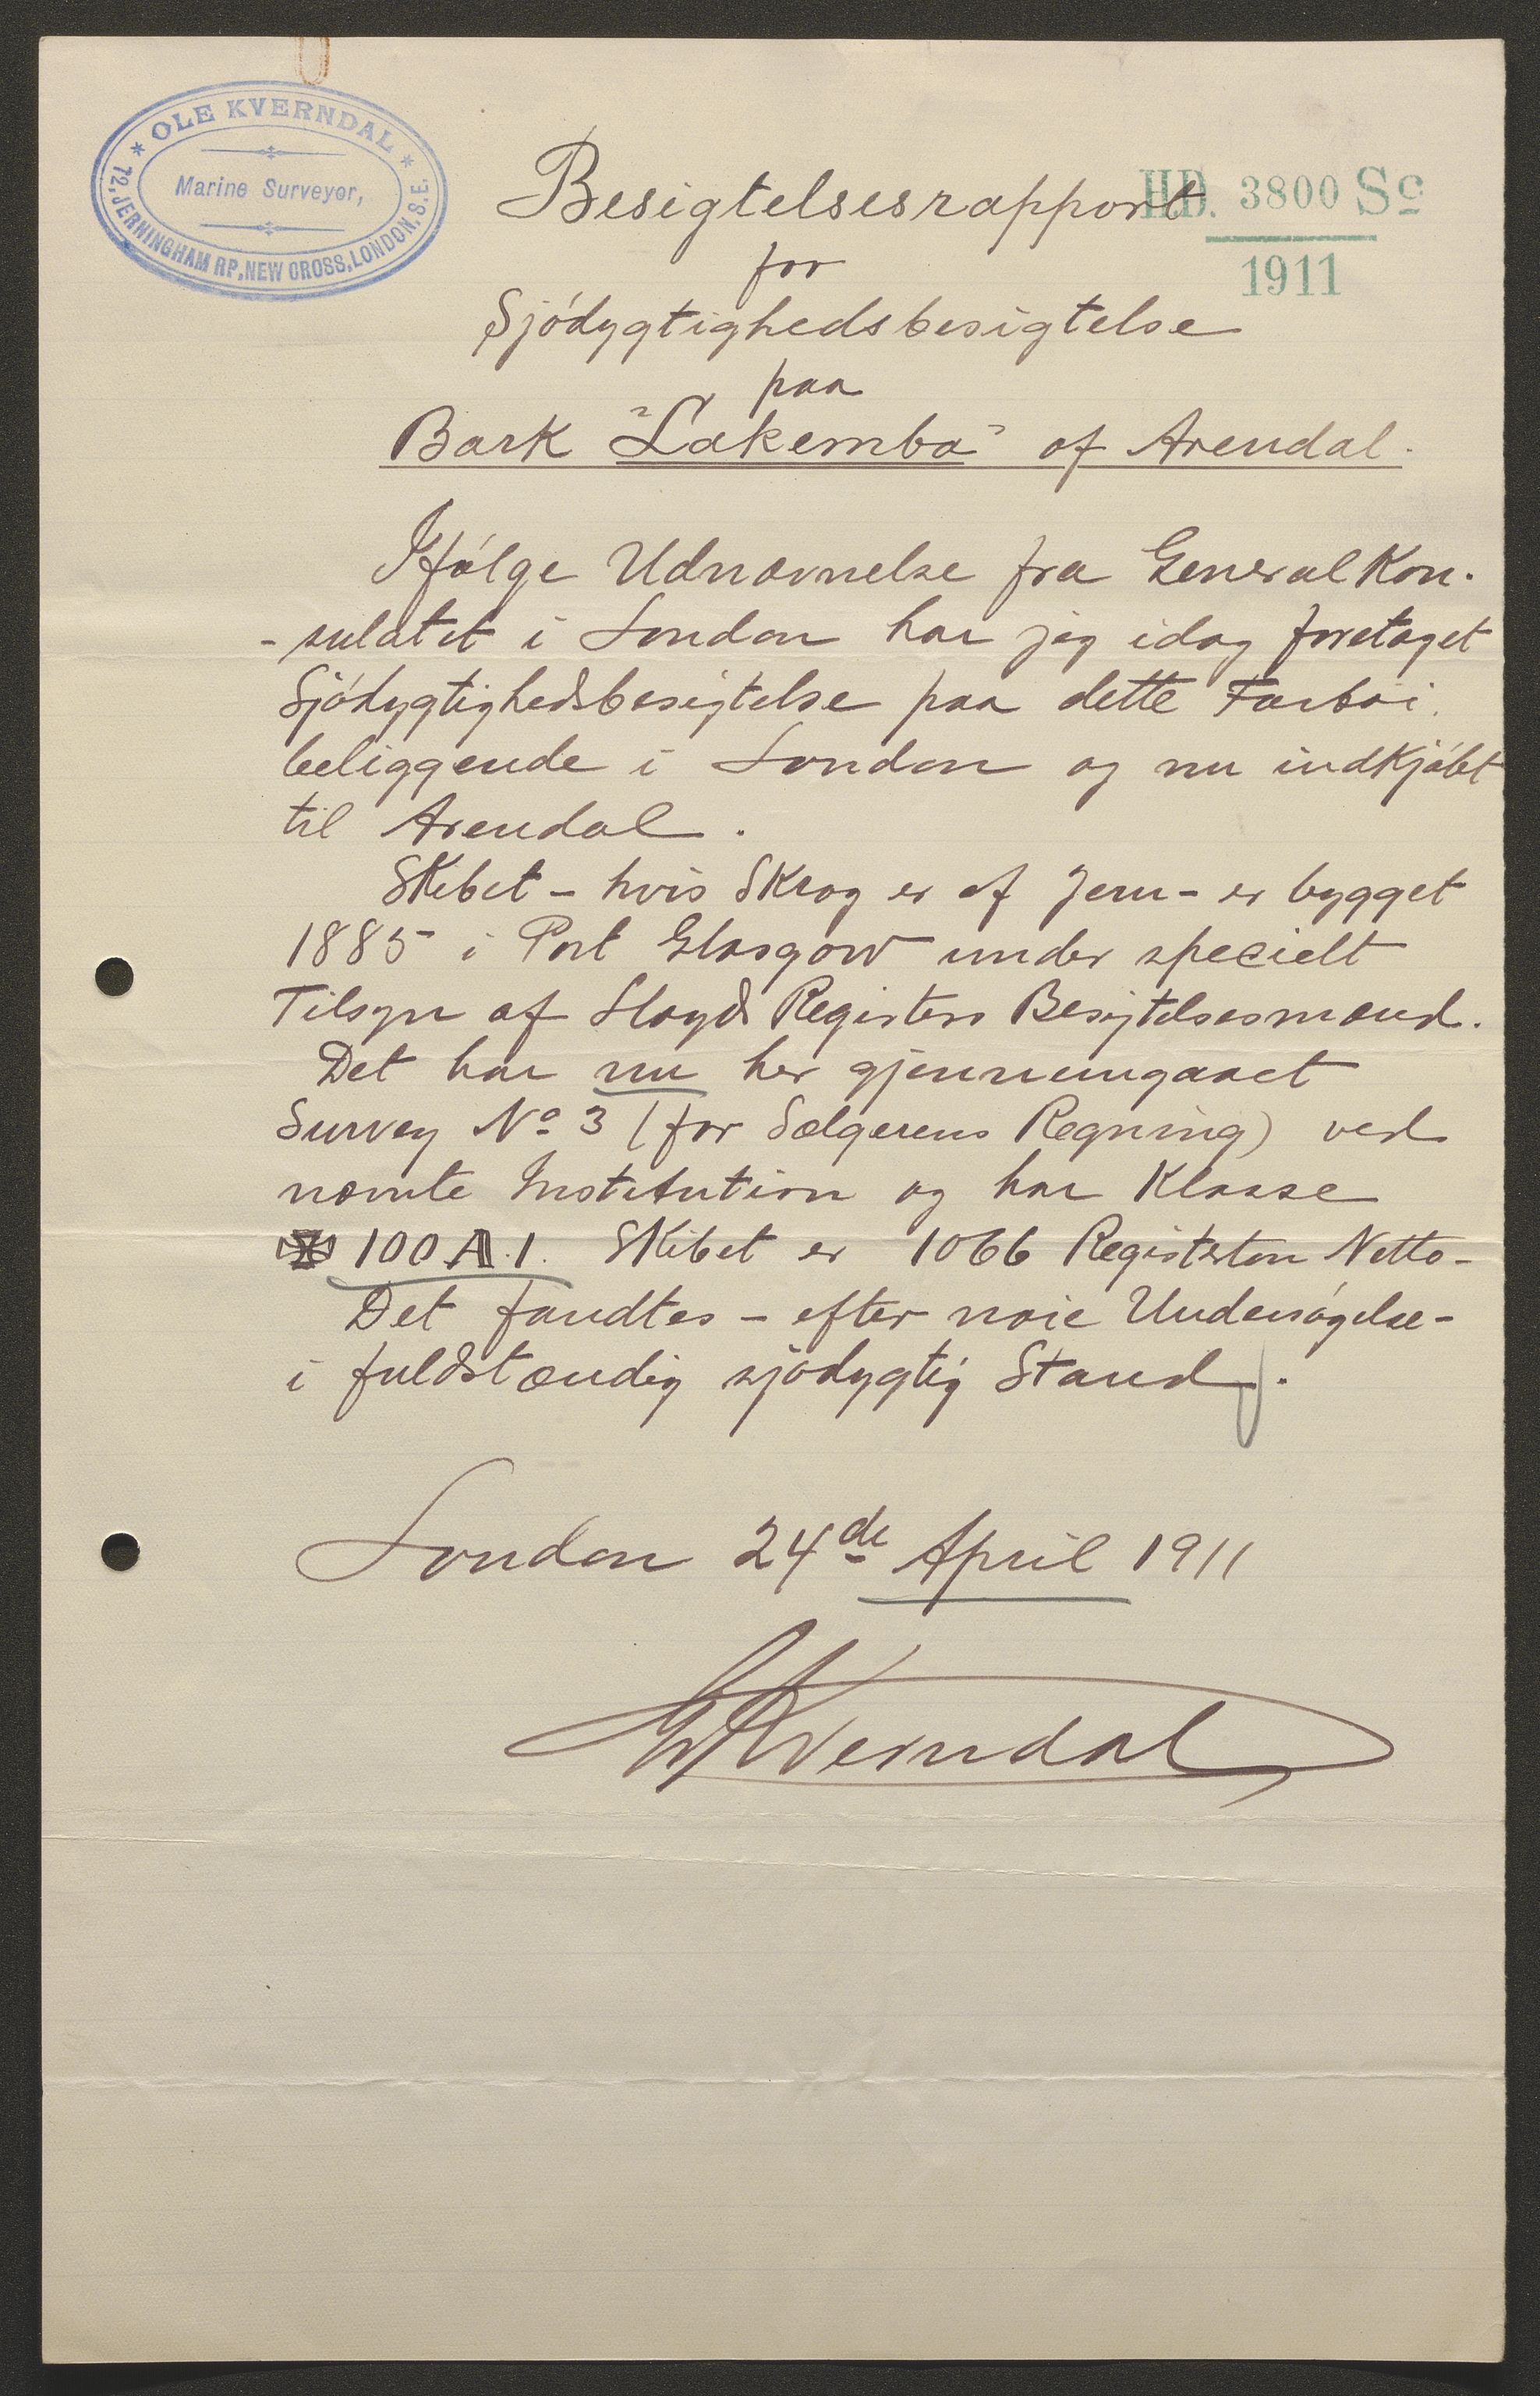 * OLE KVERNDAL *
Marine Surveyor,
72, JERNINGHAM RP, NEW CROSS, LONDON, S.E.
H.D. 3800 Sc
1911
Besigtelsesrapport
for
Sjódygtighedsbesigtelse
paa
Bark "Lakemba" af Arendal.
Ifólge Udnævnelse fra General Kon-
-sulatet i London har jeg idag foretaget
Sjódygtighedsbesigtelse paa dette Fartøi
beliggende i London og nu indkjóbt
til Arendal.
Skibet - hvis Skrog er af Jern - er bygget
1885 i Port Glasgow under specielt
Tilsyn af Lloyds Registers Besigtelsesmænd.
Det har nu her gjennemgaaet
Survey No 3 (for Sælgerens Regning) ved
nævnte Institution og har Klasse
✠ 100 A.1. Skibet er 1066 Registerton Netto -
Det fandtes - efter nøie Undersógelse -
i fuldstændig sjódygtig Stand.
London 24de April 1911
Kverndal